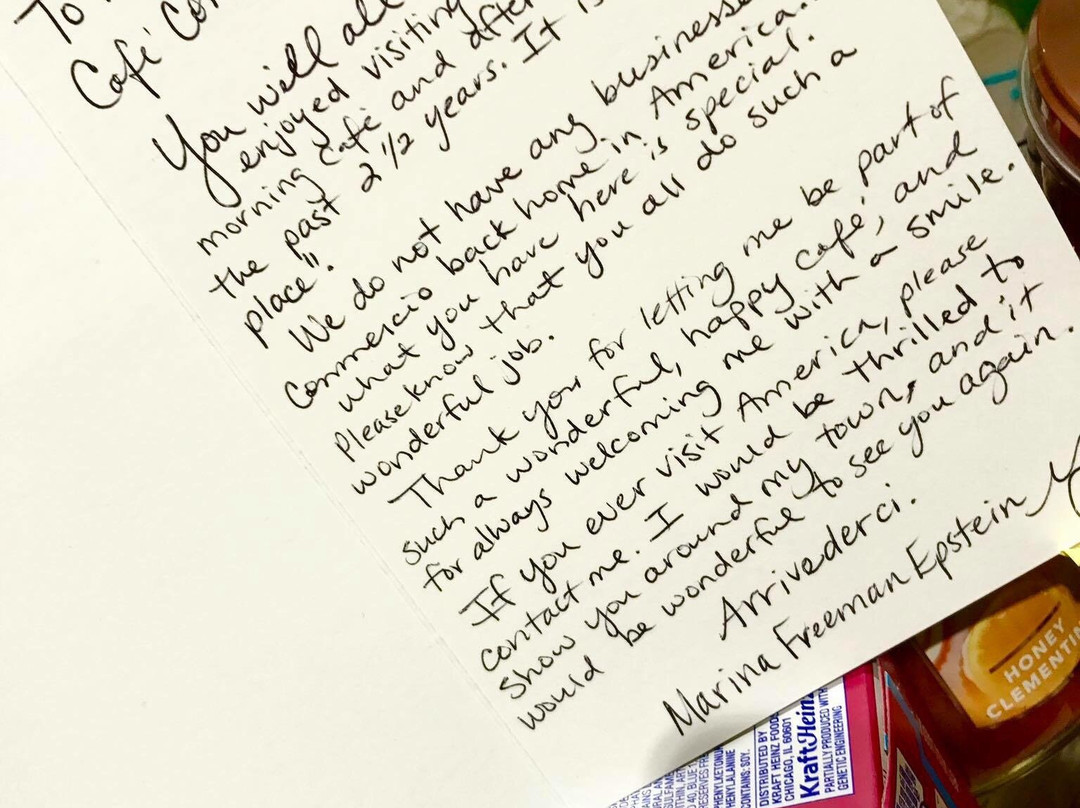 To
Café Co
You will al
enjoyed visiting
morning café and after
the past 2 1/2 years. It is
place".
We do not have any businesse
commercio back home in America.
what you have here is special.
Please know that you all do such a
wonderful job.
Thank you for letting me be part of
such a wonderful, happy café, and
for always welcoming me with a smile.
If you ever visit America, please
contact me. I would be thrilled to
show you around my town, and it
would be wonderful to see you again.
Arrivederci.
Marina Freeman Epstein
HONEY
CLEMENTI
DISTRIBUTED BY
KRAFT HEINZ FOODS
CHICAGO, IL 60601
KraftHeinz
PARTIALLY PRODUCED WITH
GENETIC ENGINEERING
PHENYLKETONU
PHENYLALANINE
CONTAINS: SOY.